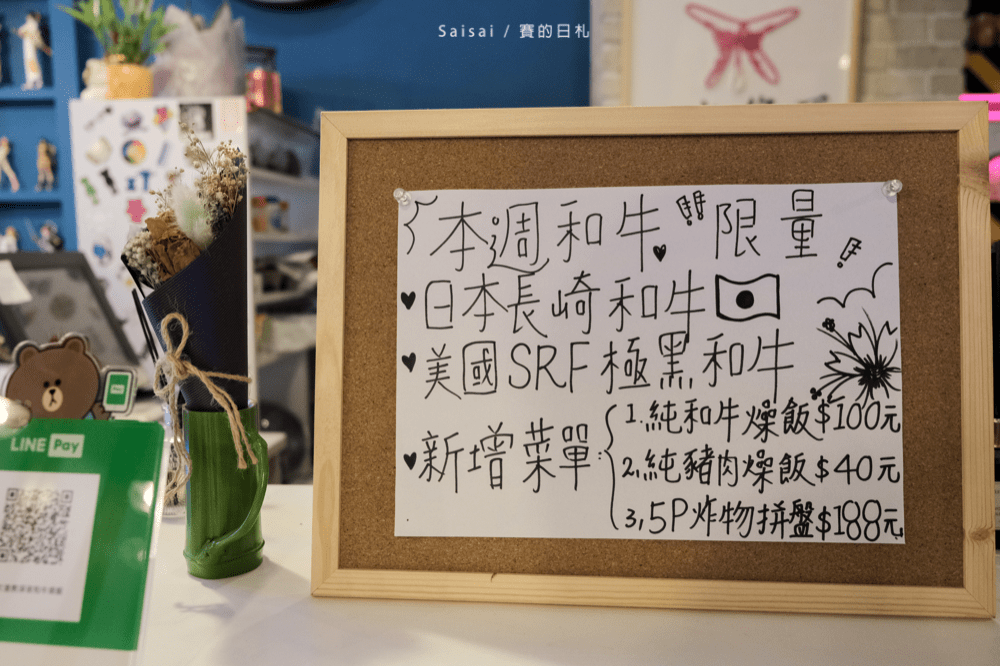 Saisai / 賽的日札
本週和牛 限量
日本長崎和牛
美國SRF極黑和牛
新增菜單:
1.純和牛燥飯$100元
2.純豬肉燥飯$40元
3,5P炸物拼盤$188元
LINE Pay